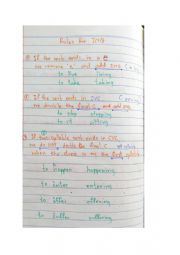 Rules for ING
① If the verb ends in a e
we remove "e" and add ING
to live living
to take taking
② If the verb ends in CVC
we double the final C and add ING
to stop stopping
to sit sitting
③ If two syllable verb ends in CVC
we do NOT double the final C
when the stress is on the first syllable
to happen happening
to enter entering
to offer offering
to suffer suffering